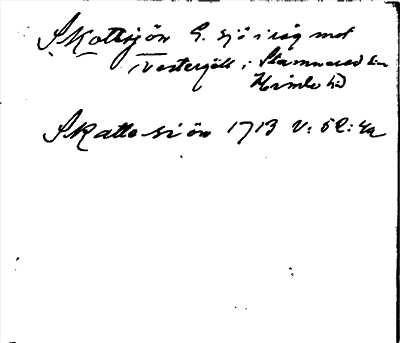 Skottsjön G. sjö i råg mot
Västergötl i Stamnared sn
Himle hd
Skatte siön 1713 V: 52: 4a